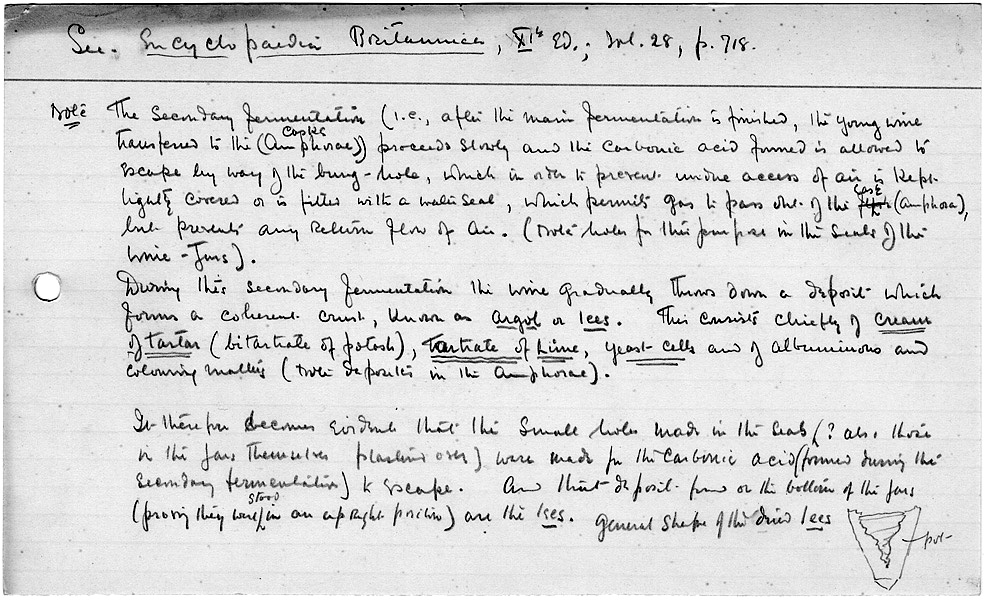 See. Encyclopaedia Britannica, XIth Ed.; Vol. 28, p. 718.
Note The secondary fermentation (i.e., after the main fermentation is finished, the young wine
casks
transferred to the (Amphorae)) proceeds slowly and the Carbonic acid formed is allowed to
escape by way of the bung-hole, which in order to prevent undue access of air is kept
lightly covered or is fitted with a water seal, which permits gas to pass out of the cask (amphora),
but prevents any return flow of air. (Note holes for this purpose in the seals of the
Wine-Jars).
During this secondary fermentation the wine gradually throws down a deposit which
forms a coherent crust, known as argol or lees. This consists chiefly of cream
of tartar (bitartrate of potash), tartrate of lime, yeast cells and of albuminous and
colouring matters (Note deposits in the Amphorae).
It therefore becomes evident that the small holes made in the seals (? also those
in the jars themselves plastered over) were made for the Carbonic acid (formed during the
secondary fermentation) to escape. And that deposit found on the bottom of the jars
stood
(proving they were in an upright position) are the lees. General shape of the dried lees
pot